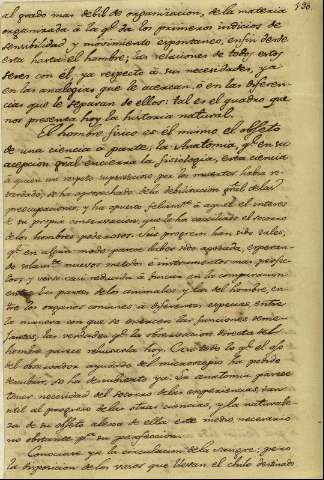 136.
al grado mas debil de organizacion, de la materia
organizada à la ql. da los primeros indicios de
sensibilidad y movimiento espontaneo, en fin desde
esta hasta el hombre; las relaciones de todos estos
seres con el, ya respecto à sus necesidades, ya
en las analogias que le acercan, ò en las diferen-
cias que le separan de ellos: tal es el quadro que
nos presenta hoy la historia natural.
El hombre fisico es èl mismo el objeto
de una ciencia à parte; la Anatomia, ql. en su
acepcion gñal. encierra la fisiologia, esta ciencia
à quien un respeto supersticioso por los muertos habia re-
tardado, se ha aprovechado de la debilitacion gñal. de las
preocupaciones, y ha opuesto à aquel el interes
de su propia conservacion, que le ha conciliado el socorro
de los hombres poderosos. Sus progresos han sido tales,
ql. en algun modo parece haber sido agotada, esperan-
do nuevos metodos è instrumentos mas perfec-
tos, y verse casi reducida à buscar en la comparacion
entre las partes de los animales y las del hombre, en-
tre los organos comunes à diferentes especies, entre
la manera con que se exercen las funciones seme-
jantes, las verdades ql. la observacion directa del
hombre parece rehusarla hoy. Casi todo lo ql. el ojo
del observador ayudado del microscopio ha podido
descubrir, se ha descubierto ya. La anatomia parece
tener necesidad del socorro de las experiencias, tan
util al progreso de las otras ciencias, y la naturale-
za de su objeto aleja de ella este medio necesario
no obstante pa. su perfeccion.
Conociase ya la circulacion de la sangre; pero
la disposicion de los vasos que llevan el chilo destinado